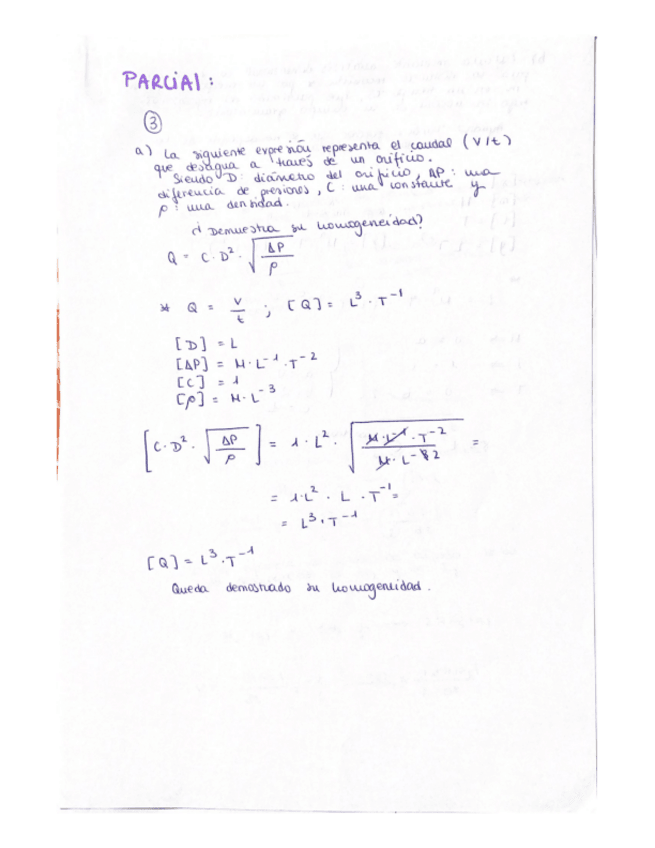 PARCIAL:
③
a) La siguiente expresión representa el caudal (V/t)
que desagua a través de un orificio.
Siendo D: diámetro del orificio, ΔP: una
diferencia de presiones, C: una constante y
ρ: una densidad.
¿Demuestra su homogeneidad?
Q = C·D²·√(ΔP/ρ)
* Q = V/t ; [Q] = L³·T⁻¹
[D] = L
[ΔP] = M·L⁻¹·T⁻²
[C] = 1
[ρ] = M·L⁻³
[C·D²·√(ΔP/ρ)] = 1·L²·√(M·L⁻¹·T⁻²/M·L⁻³ 2) =
= 1·L²·L·T⁻¹=
= L³·T⁻¹
[Q] = L³·T⁻¹
Queda demostrado su homogeneidad.